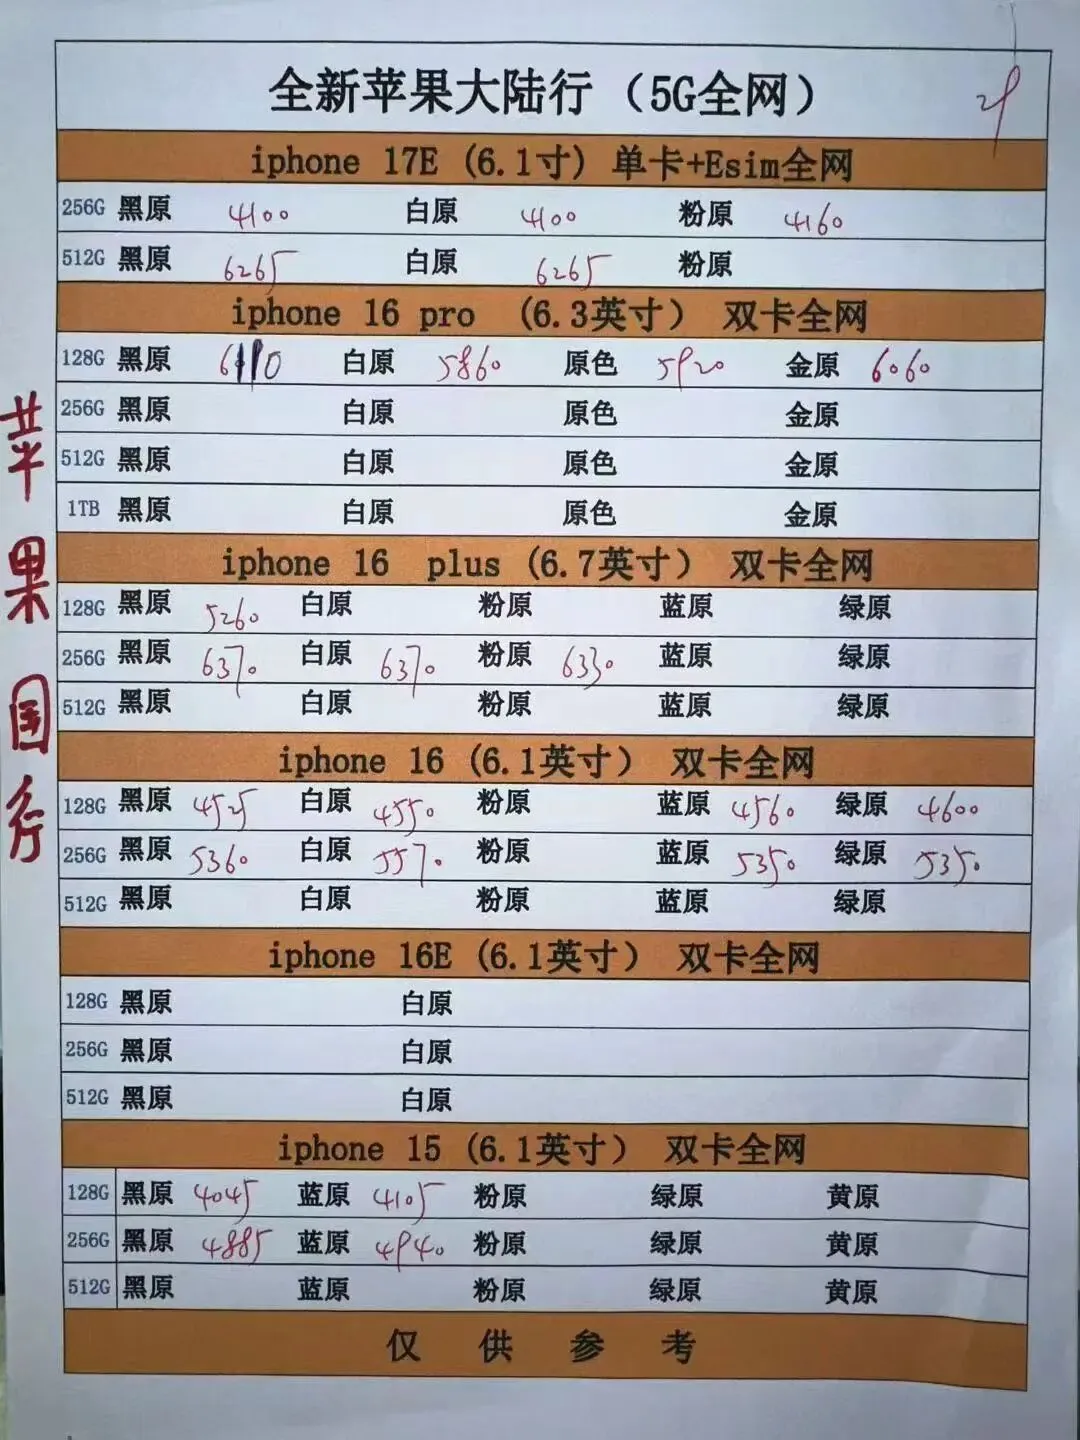 全新苹果大陆行（5G全网）
iphone 17E (6.1寸) 单卡+Esim全网
256G 黑原 4100 白原 4100 粉原 4160
512G 黑原 6265 白原 6265 粉原
iphone 16 pro (6.3英寸) 双卡全网
128G 黑原 6110 白原 5860 原色 5920 金原 6060
256G 黑原 白原 原色 金原
512G 黑原 白原 原色 金原
1TB 黑原 白原 原色 金原
iphone 16 plus (6.7英寸) 双卡全网
128G 黑原 5260 白原 粉原 蓝原 绿原
256G 黑原 6370 白原 6370 粉原 6330 蓝原 绿原
512G 黑原 白原 粉原 蓝原 绿原
iphone 16 (6.1英寸) 双卡全网
128G 黑原 4525 白原 4550 粉原 蓝原 4560 绿原 4600
256G 黑原 5360 白原 5570 粉原 蓝原 5350 绿原 5350
512G 黑原 白原 粉原 蓝原 绿原
iphone 16E (6.1英寸) 双卡全网
128G 黑原 白原
256G 黑原 白原
512G 黑原 白原
iphone 15 (6.1英寸) 双卡全网
128G 黑原 4045 蓝原 4105 粉原 绿原 黄原
256G 黑原 4885 蓝原 4940 粉原 绿原 黄原
512G 黑原 蓝原 粉原 绿原 黄原
仅供参考
苹果国行